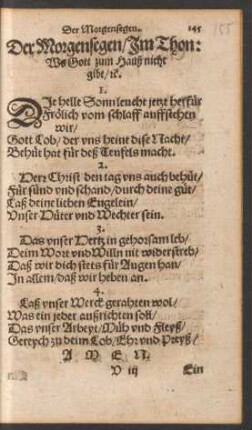 Der Morgensegen. 145
155
Der Morgensegen/ Im Thon:
Wo Gott zum Hauß nicht
gibt/ ꝛc.
1.
DJe helle Sonn leucht jetzt herfür
Frölich vom schlaff auffstehen
wir/
Gott Lob/ der vns heint dise Nacht/
Behüt hat für deß Teufels macht.
2.
Herr Christ den tag vns auch behüt/
Für sünd vnd schand/ durch deine güt/
Laß deine lieben Engelein/
Vnser Hüter vnd Wechter sein.
3.
Das vnser Hertz in gehorsam leb/
Deim Wort vnd Willn nit widerstreb/
Daß wir dich stets für Augen han/
In allem/ daß wir heben an.
4.
Laß vnser Werck gerahten wol/
Was ein jeder außrichten soll/
Das vnser Arbeyt/ Müh vnd Fleyß/
Gereych zu deim Lob/ Ehr vnd Preyß/
A M E N.
V iij Ein